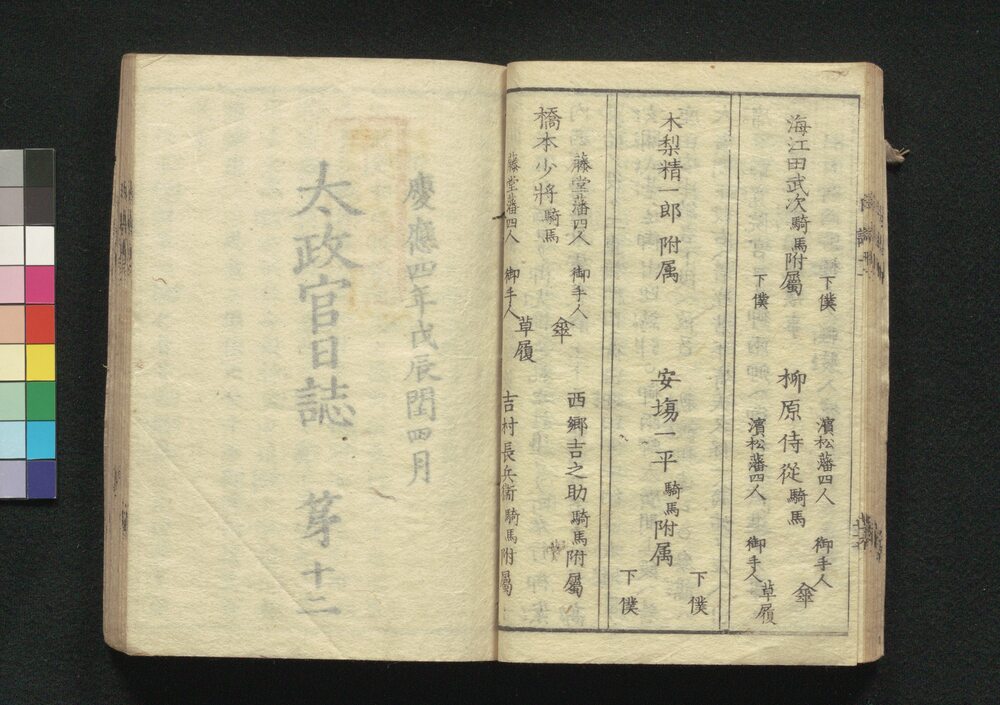 海江田武次騎馬附屬
下僕
下僕
濱松藩四人 御手人
柳原侍從騎馬 傘
濱松藩四人 御手人 草履
木梨精一郎 附属
安場一平 騎馬附属
下僕
下僕
藤堂藩四人 御手人
橋本少將騎馬 傘
藤堂藩四人 御手人 草履
西郷吉之助騎馬附屬
吉村長兵衞騎馬附屬
慶應四年戊辰閏四月
太政官日誌 第十二